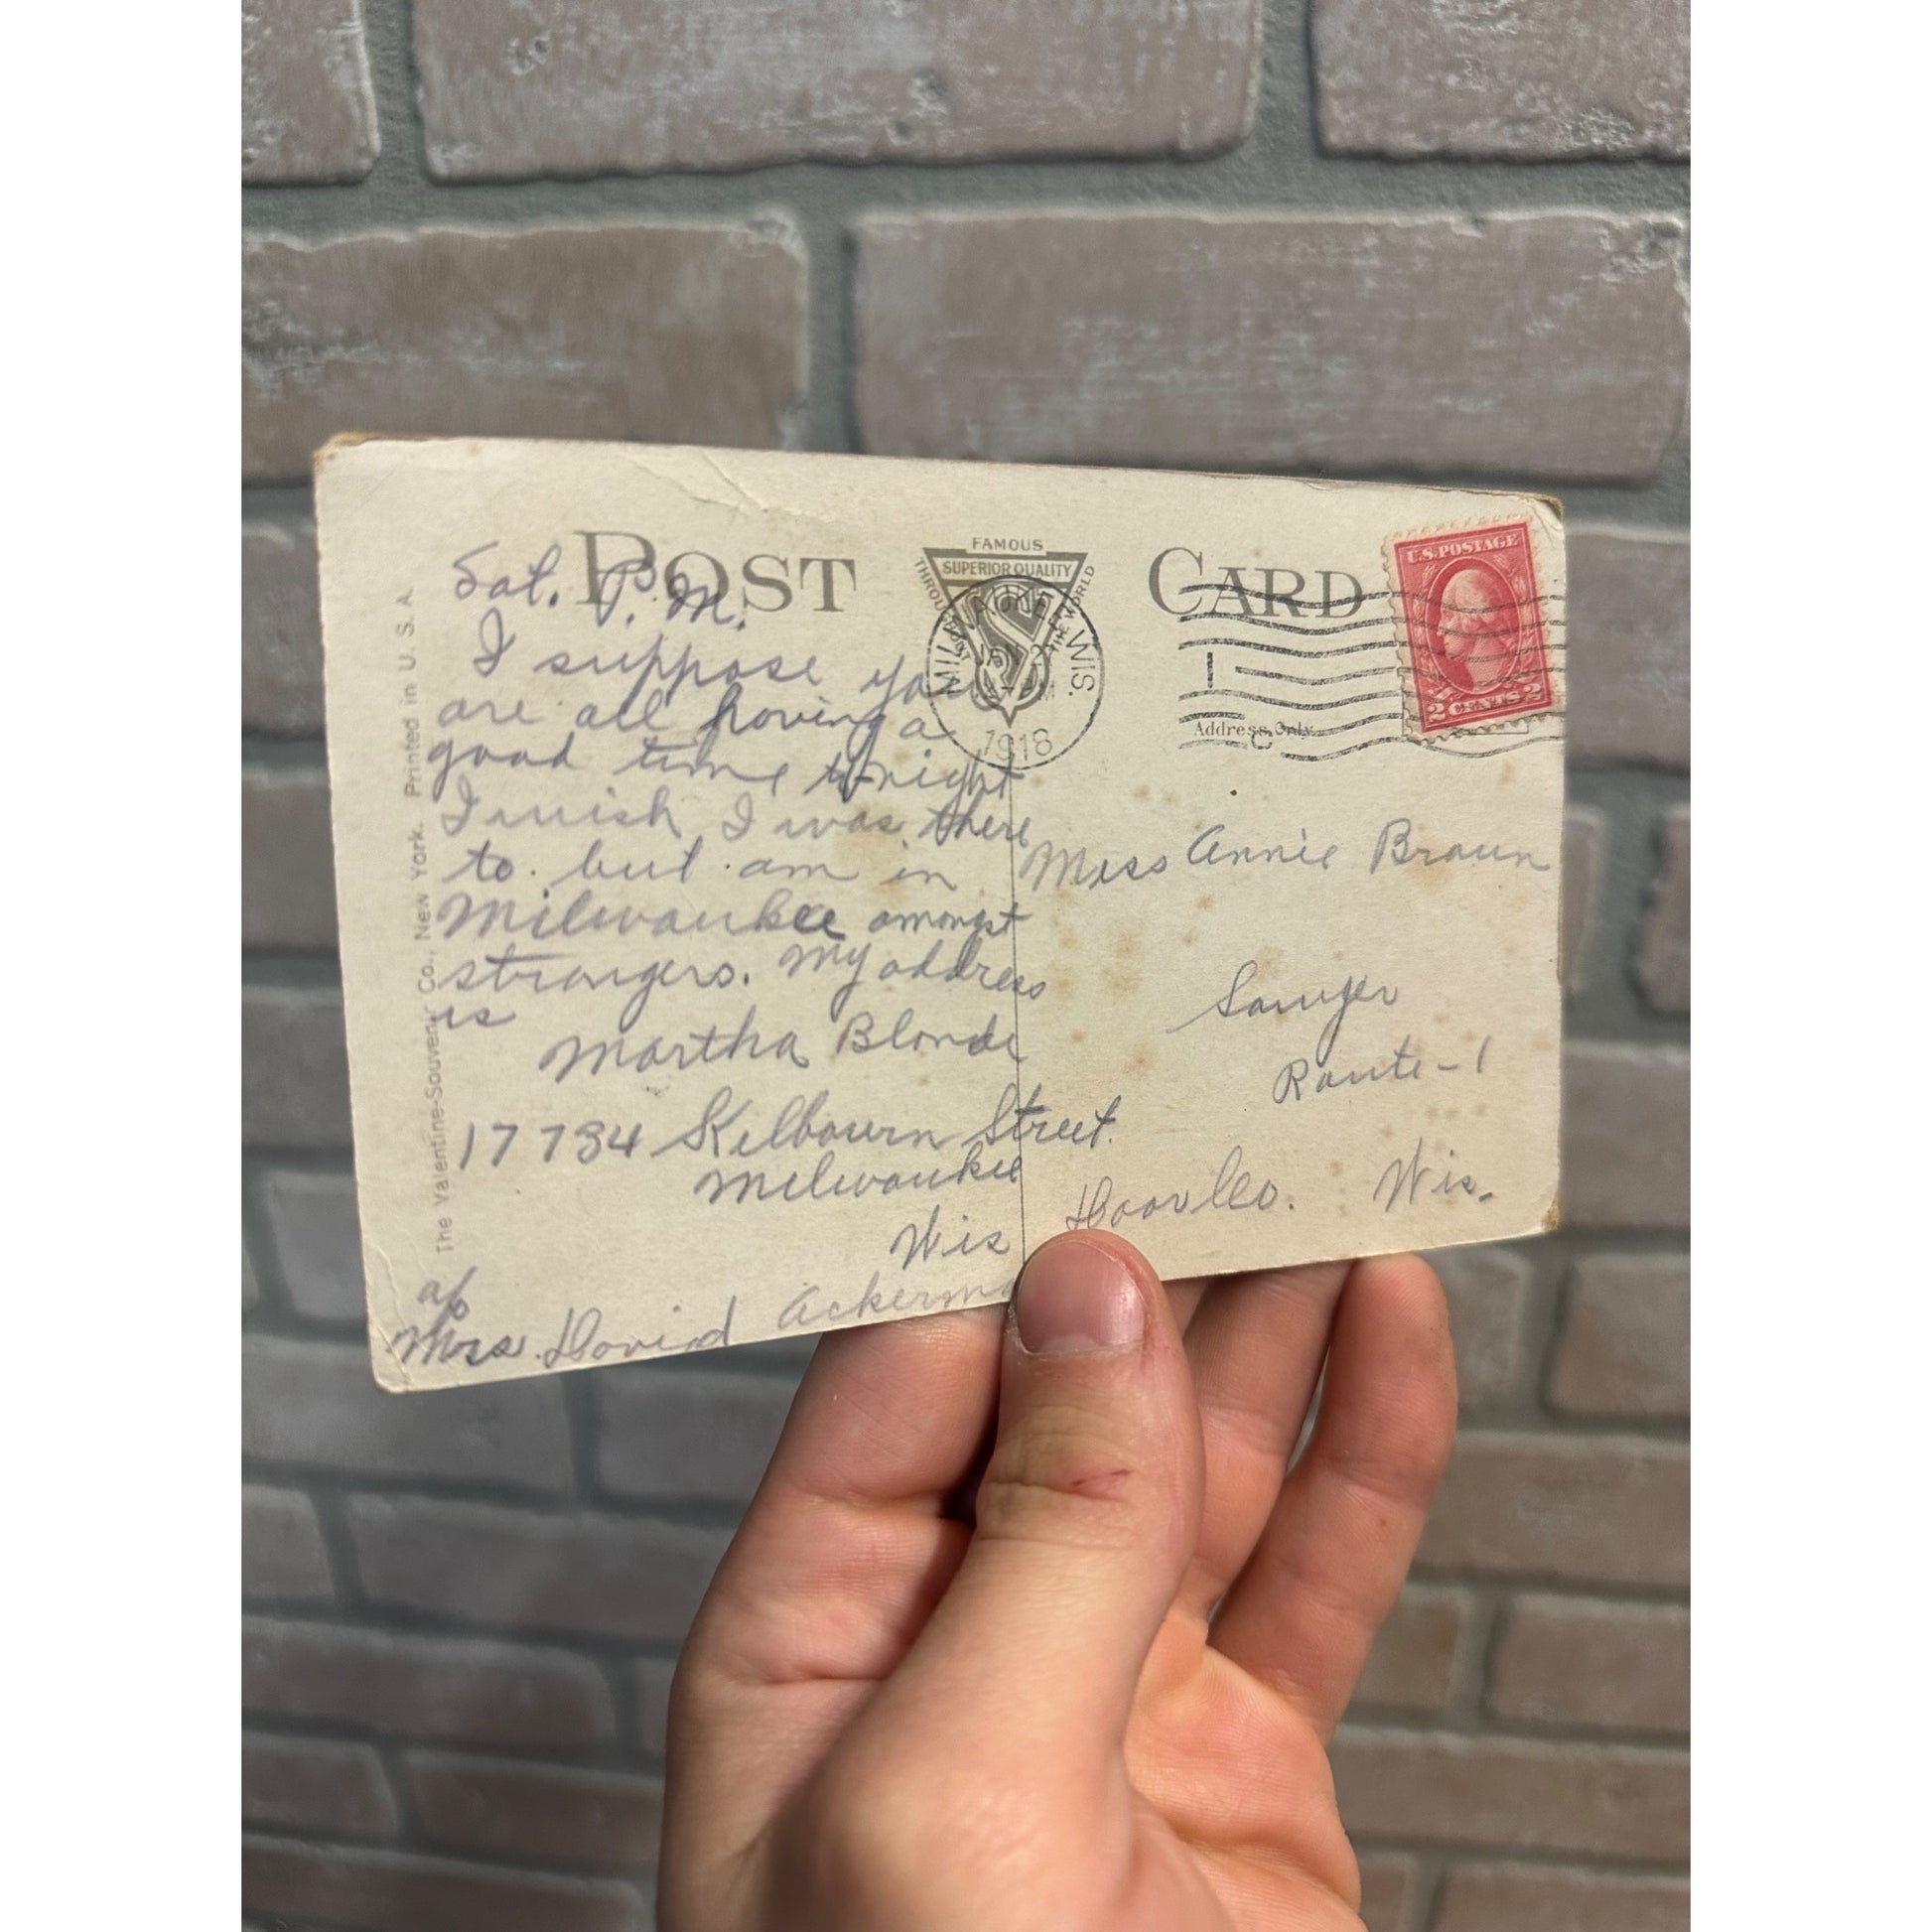 POST CARD
FAMOUS
SUPERIOR QUALITY
THROUGHOUT THE WORLD
VS
MILWAUKEE, WIS.
1918
1
U.S. POSTAGE
2 CENTS 2
Address Only
The Valentine-Souvenir Co., New York. Printed in U. S. A.
Sat. P.M.
I suppose you
are all having a
good time tonight
I wish I was there
to. but am in
Milwaukee amongst
strangers. My address
is
Martha Blonde
17734 Kilbourn Street.
Milwaukee
Wis
Mrs. David Ackerma
Miss Annie Braun
Sawyer
Route-1
Door Co. Wis.